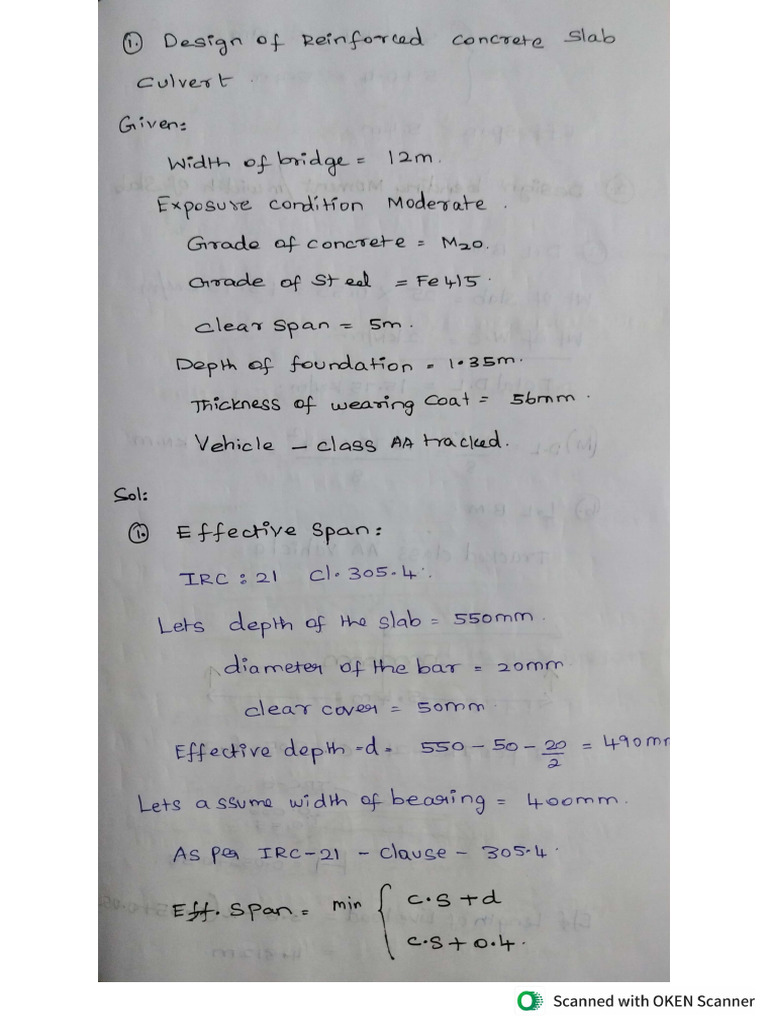 1. Design of Reinforced concrete slab
culvert.
Given:
Width of bridge = 12m.
Exposure condition Moderate.
Grade of concrete = M20.
Grade of Steel = Fe415.
clear span = 5m.
Depth of foundation = 1.35m.
Thickness of wearing coat = 56mm.
Vehicle - class AA tracked.
Sol:
1. Effective Span:
IRC : 21 Cl. 305.4.
Lets depth of the slab = 550mm.
diameter of the bar = 20mm
clear cover = 50mm
Effective depth = d = 550 - 50 - 20/2 = 490mm
Lets assume width of bearing = 400mm.
As per IRC-21 - clause - 305.4.
Eff. Span = min { c.s + d
c.s + 0.4.
Scanned with OKEN Scanner